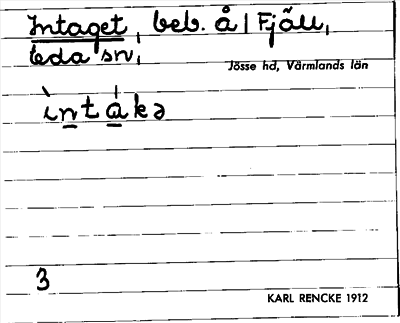 Intaget, beb. å | Fjäll,
Eda sn,
Jösse hd, Värmlands län
ìntákə
3
KARL RENCKE 1912